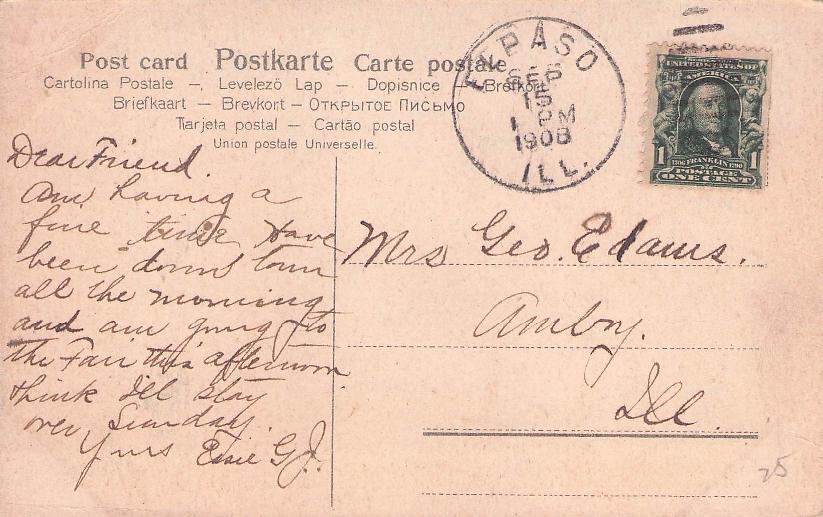 Post card Postkarte Carte postale
Cartolina Postale –, Levelezö Lap – Dopisnice – Brefkort
Briefkaart – Brevkort – Открытое Письмо
Tarjeta postal – Cartão postal
Union postale Universelle.
EL PASO
SEP
15
1 PM
1908
ILL.
UNITED STATES OF
AMERICA
1 1706 FRANKLIN 1790 1
POSTAGE
ONE CENT
Dear Friend.
Am having a
fine time Have
been down town
all the morning
and am going to
the Fair this afternoon
think Ill stay
over Sunday.
Yours Essie G. J.
Mrs Geo. Edams.
Amboy.
Ill.
25